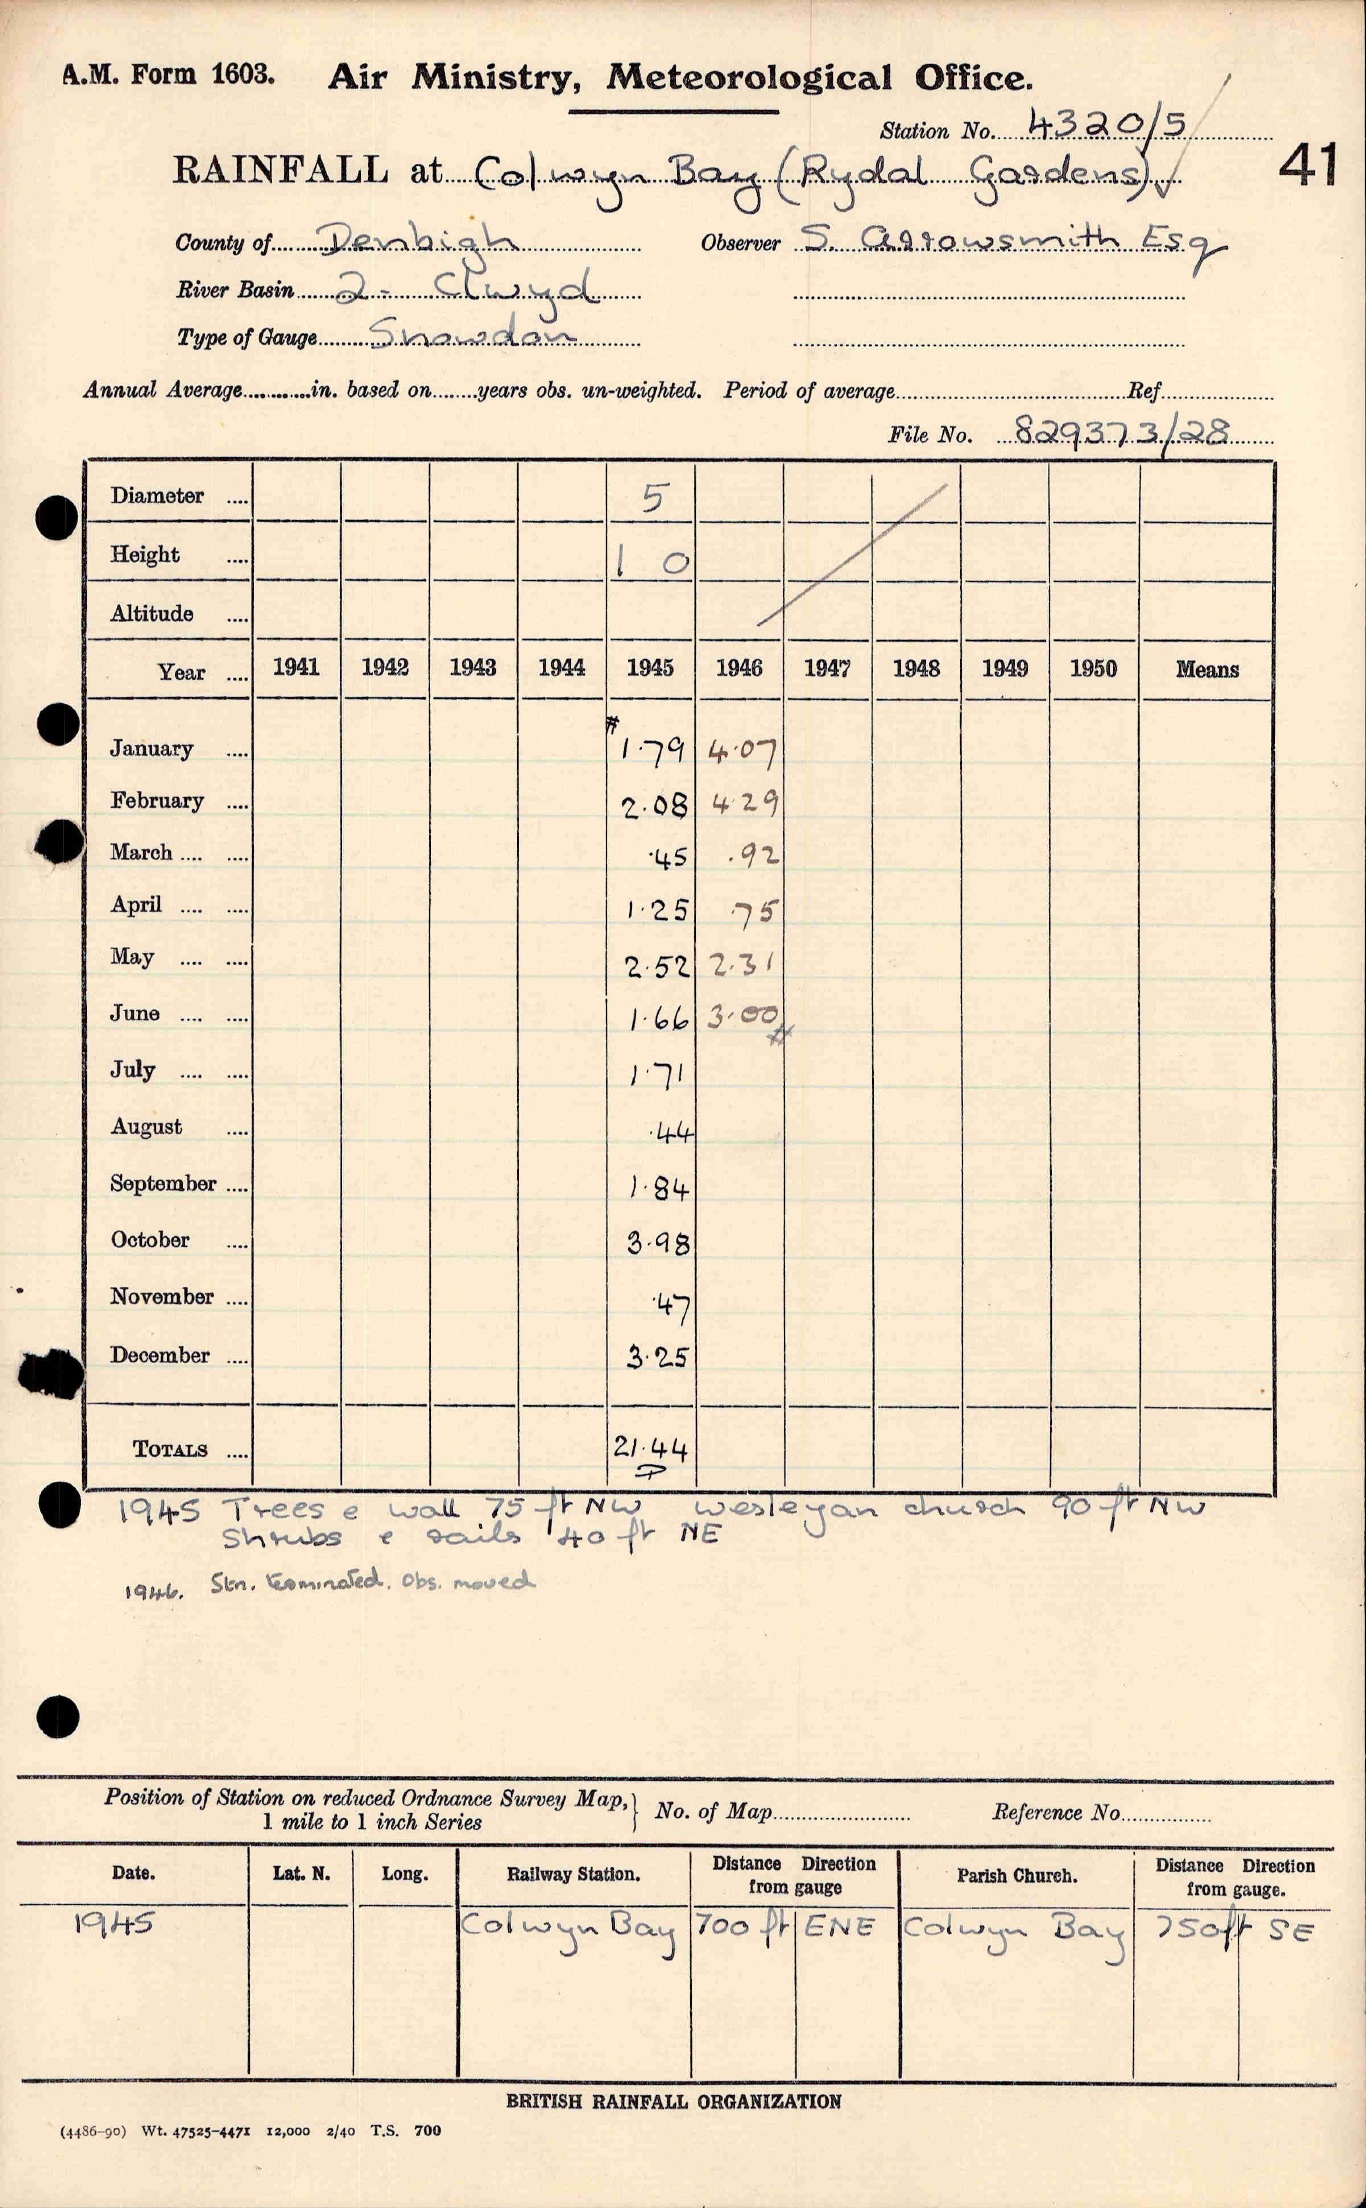 A.M. Form 1603. Air Ministry, Meteorological Office.
Station No. 4320/5
RAINFALL at Colwyn Bay (Rydal Gardens) 41
County of Denbigh Observer S. Arrowsmith Esq
River Basin 2 - Clwyd
Type of Gauge Snowdon
Annual Average............in. based on........years obs. un-weighted. Period of average........Ref........
File No. 829373/28
Diameter .... 5
Height .... 1 0
Altitude ....
Year .... 1941 1942 1943 1944 1945 1946 1947 1948 1949 1950 Means
#
January .... 1.79 4.07
February .... 2.08 4.29
March .... .... .45 .92
April .... .... 1.25 .75
May .... .... 2.52 2.31
June .... .... 1.66 3.00 #
July .... .... 1.71
August .... .44
September .... 1.84
October .... 3.98
November .... .47
December .... 3.25
TOTALS .... 21.44
1945 Trees & wall 75 ft NW Wesleyan church 90 ft NW
Shrubs & rails 40 ft NE
1946. Stn. terminated. Obs. moved
Position of Station on reduced Ordnance Survey Map,} No. of Map........ Reference No........
1 mile to 1 inch Series
Date. Lat. N. Long. Railway Station. Distance Direction from gauge Parish Church. Distance Direction from gauge.
1945 Colwyn Bay 700 ft ENE Colwyn Bay 750ft SE
BRITISH RAINFALL ORGANIZATION
(4486-90) Wt. 47525-4471 12,000 2/40 T.S. 700